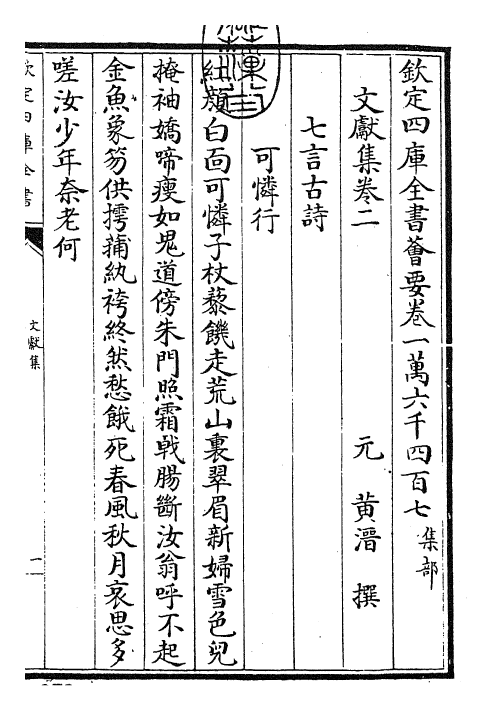 欽定四庫全書薈要卷一萬六千四百七 集部
文獻集卷二 元 黃溍 撰
七言古詩
可憐行
紅顔白面可憐子杖藜饑走荒山裏翠眉新婦雪色兒
掩袖嬌啼瘦如鬼道傍朱門照霜戟腸斷汝翁呼不起
金魚象笏供摴蒱紈袴終然愁餓死春風秋月哀思多
嗟汝少年奈老何
欽定四庫全書
文獻集